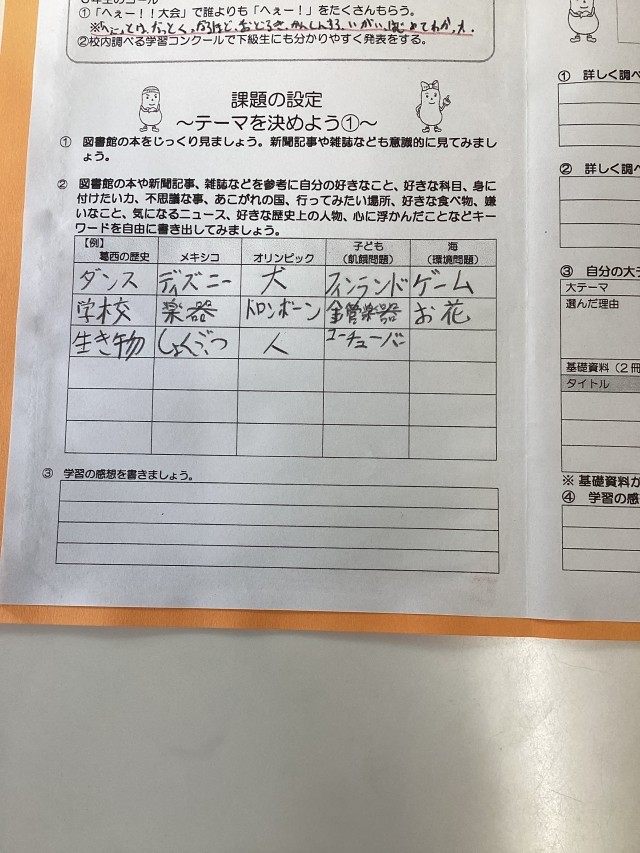 6年生のゴール
①「へぇー！！大会」で誰よりも「へぇー！」をたくさんもらう。
※へぇーとは、なっとく、なるほど、おどろき、かんしんする、いがい、はじめてわかった。
②校内調べる学習コンクールで下級生にも分かりやすく発表をする。
課題の設定
～テーマを決めよう①～
① 図書館の本をじっくり見ましょう。新聞記事や雑誌なども意識的に見てみまし
ょう。
② 図書館の本や新聞記事、雑誌などを参考に自分の好きなこと、好きな科目、身に
付けたい力、不思議な事、あこがれの国、行ってみたい場所、好きな食べ物、嫌
いなこと、気になるニュース、好きな歴史上の人物、心に浮かんだことなどキー
ワードを自由に書き出してみましょう。
【例】
葛西の歴史 メキシコ オリンピック 子ども（飢餓問題） 海（環境問題）
ダンス ディズニー 犬 フィンランド ゲーム
学校 楽器 トロンボーン 金管楽器 お花
生き物 しょくぶつ 人 ユーチューバー
③ 学習の感想を書きましょう。
① 詳しく調べ
② 詳しく調べ
③ 自分の大テ
大テーマ
選んだ理由
基礎資料（2冊
タイトル
※ 基礎資料が
④ 学習の感